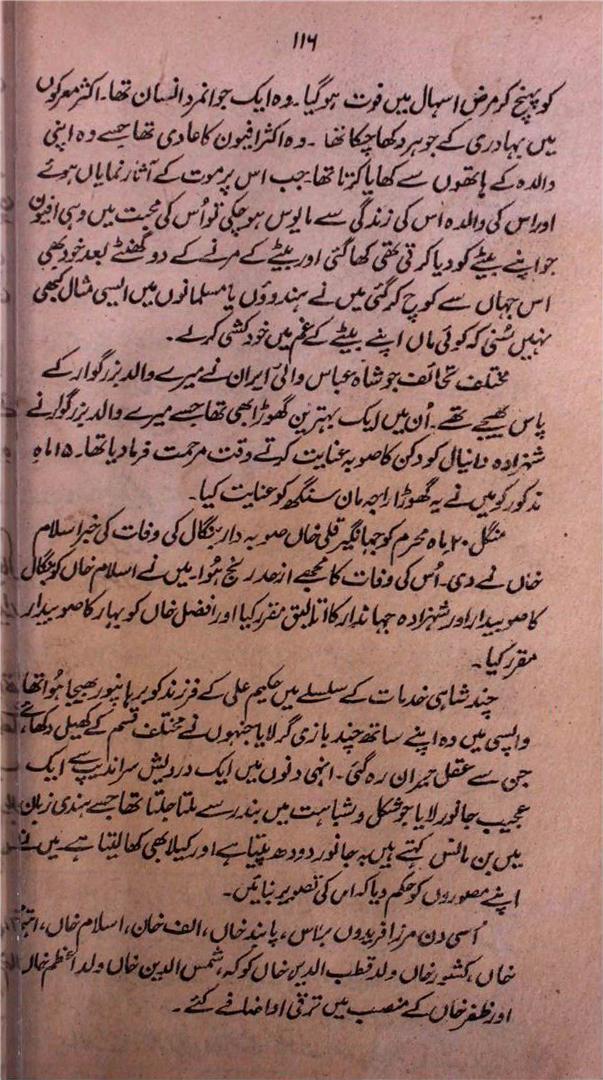 ۱۱۶
کو پہنچ کر مرض اسہال میں فوت ہو گیا۔ وہ ایک جوانمرد انسان تھا۔ اکثر معرکوں
میں بہادری کے جوہر دکھا چکا تھا۔ وہ اکثر افیون کا عادی تھا جسے وہ اپنی
والدہ کے ہاتھوں سے کھایا کرتا تھا۔ جب اس پر موت کے آثار نمایاں ہوئے
اور اس کی والدہ اس کی زندگی سے مایوس ہو چکی تو اُس کی محبت میں وہی افیون
جو اپنے بیٹے کو دیا کرتی تھی کھا گئی اور بیٹے کے مرنے کے دو گھنٹے بعد خود بھی
اس جہاں سے کوچ کر گئی میں نے ہندوؤں یا مسلمانوں میں ایسی مثال کبھی
نہیں سُنی کہ کوئی ماں اپنے بیٹے کے غم میں خودکشی کر لے۔
مختلف تحائف جو شاہ عباس والئ ایران نے میرے والد بزرگوار کے
پاس بھیجے تھے۔ اُن میں ایک بہترین گھوڑا بھی تھا جسے میرے والد بزرگوار نے
شہزادہ دانیال کو دکن کا صوبہ عنایت کرتے وقت مرحمت فرما دیا تھا۔ ۱۵ ماہ
مذکور کو میں نے یہ گھوڑا راجہ مان سنگھ کو عنایت کیا۔
منگل ۲۰ ماہ محرم کو جہانگیر قلی خاں صوبہ دار بنگال کی وفات کی خبر اسلام
خاں نے دی۔ اُس کی وفات کا مجھے از حد رنج ہُوا۔ میں نے اسلام خاں کو بنگال
کا صوبیدار اور شہزادہ جہاندار کا اتالیق مقرر کیا اور افضل خاں کو بہار کا صوبیدار
مقرر کیا۔
چند شاہی خدمات کے سلسلے میں حکیم علی کے فرزند کو برہانپور بھیجا ہُوا تھا
واپسی میں وہ اپنے ساتھ چند بازی گر لایا جنہوں نے مختلف قسم کے کھیل دکھائے
جن سے عقل حیران رہ گئی۔ انہی دنوں میں ایک درویش سراندیپ سے ایک
عجیب جانور لایا جو شکل و شباہت میں بندر سے ملتا جلتا تھا جسے ہندی زبان
میں بن مانس کہتے ہیں یہ جانور دودھ پیتا ہے اور کیلا بھی کھا لیتا ہے میں نے
اپنے مصوروں کو حکم دیا کہ اس کی تصویر بنائیں۔
اُسی دن مرزا فریدوں برلاس، پابند خاں، الف خان، اسلام خاں،
خاں، کشور خاں ولد قطب الدین خاں کوکہ، شمس الدین خاں ولد اعظم خاں
اور ظفر خاں کے منصب میں ترقی اور اضافے کئے۔